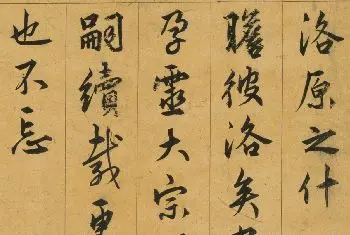 洛原之什
瞻彼洛矣
孕靈大宗
嗣續載
也不忘